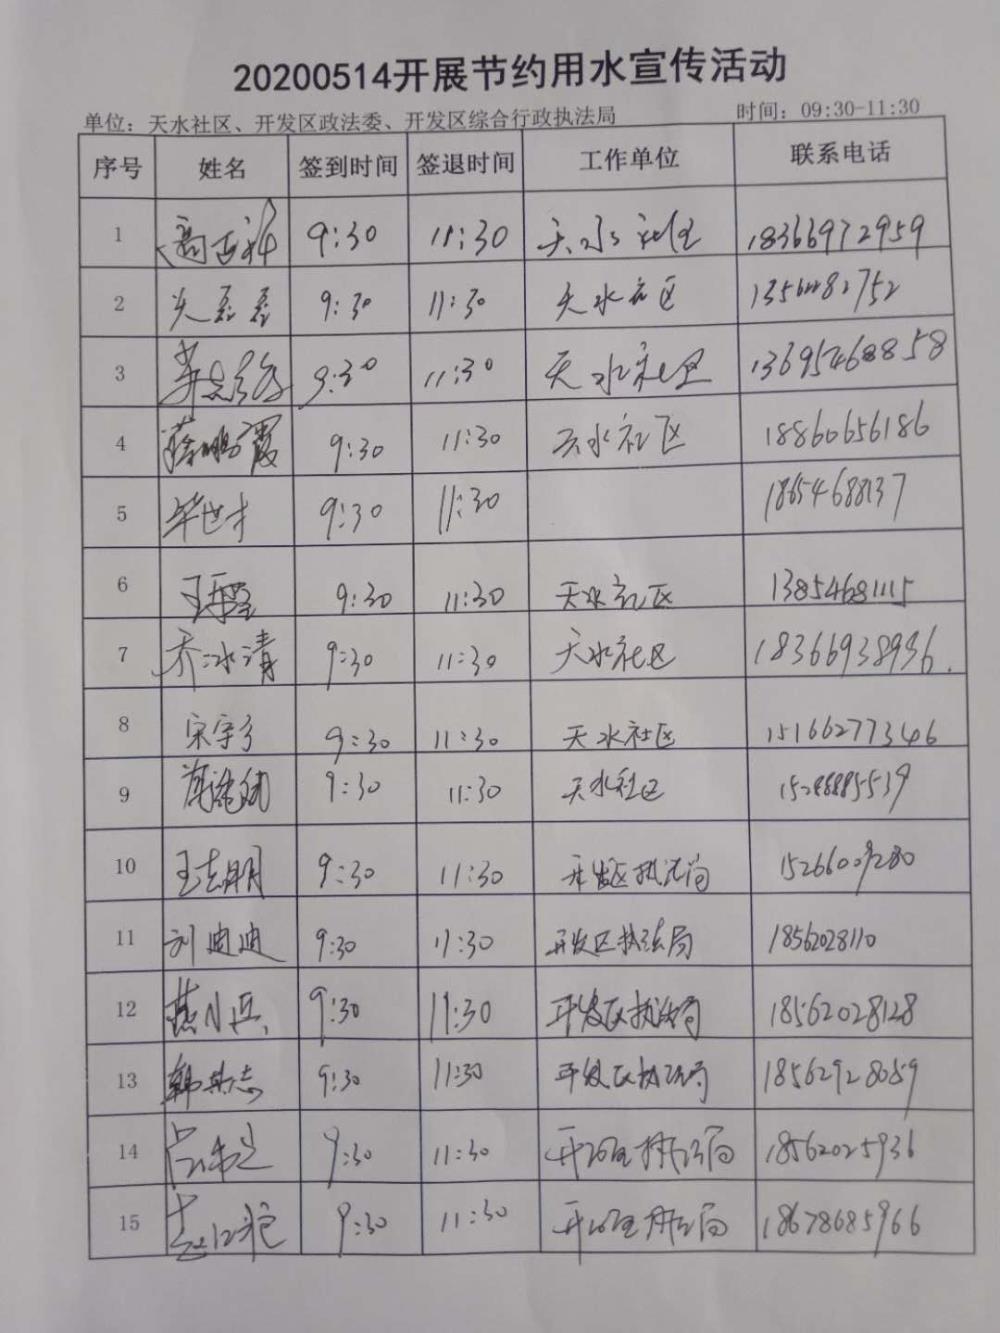 20200514开展节约用水宣传活动
单位：天水社区、开发区政法委、开发区综合行政执法局 时间：09:30-11:30
序号 姓名 签到时间 签退时间 工作单位 联系电话
1 9:30 11:30 天水社区 18366972959
2 9:30 11:30 天水社区
3 9:30 11:30 天水社区 13695468858
4 徐鹏霞 9:30 11:30 天水社区 18860656186
5 毕世才 9:30 11:30 18654688137
6 9:30 11:30 天水社区 13854681115
7 乔冰清 9:30 11:30 天水社区 18366938996.
8 9:30 11:30 天水社区 15166277346
9 9:30 11:30 天水社区
10 王志明 9:30 11:30 开发区执法局 15266009280
11 刘迪迪 9:30 11:30 开发区执法局 18562028110
12 燕小兵 9:30 11:30 开发区执法局 18562028128
13 韩其志 9:30 11:30 开发区执法局 18562928059
14 9:30 11:30 开发区执法局 18562025936
15 9:30 11:30 开发区执法局 18678685966